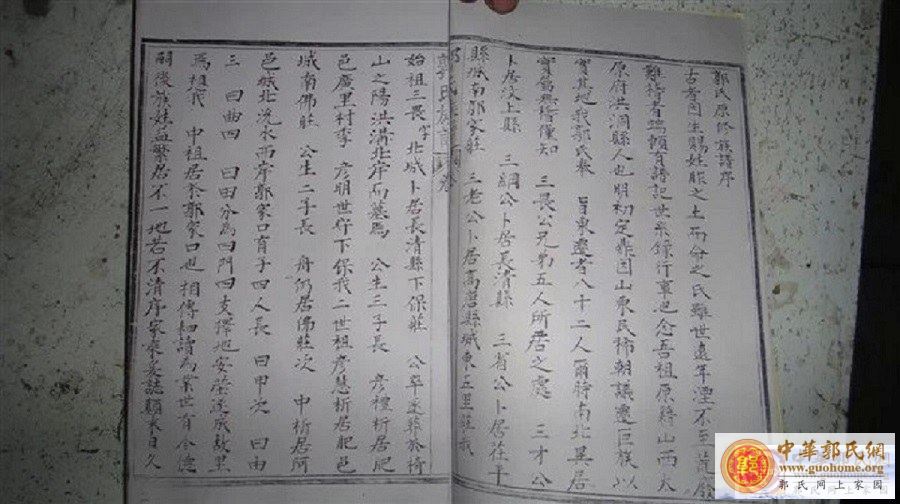 郭氏原修族譜序
古者因生賜姓胙之土而命之氏雖世遠年湮不至荒
難稽者端賴有譜記世系錄行實也念吾祖原籍山西太
原府洪洞縣人也明初定鼎因山東民稀朝議遷巨族以
實其地我郭氏奉 旨東遷者八十二人爾時南北星居
實難僅知 三畏公兄弟五人所居之處 三才公
卜居汶上縣 三綱公卜居長清縣 三省公卜居茌平
縣城南郭家莊 三老公卜居高唐縣城東五里莊我
始祖三畏字北城卜居長清縣下保莊 公卒遂葬於椅
山之陽洪溝北岸而墓焉 公生三子長 彥禮析居肥
邑廣里村李 彥明世守下保我二世祖彥慧析居肥邑
城南佛莊 公生二子長 舟仍居佛莊次 中析居阿
邑城北洸水西岸郭家口育子四人長 曰申次 曰由
三 曰曲四 曰田分為四門四支擇地安塋遂成故里
焉祖我 中祖居於郭家口也相傳耕讀為業世有令德
嗣後族姓益繁居不一地若不清序家乘妥誌類永日久
中華郭氏網
www.guohome.org
郭氏网上家园